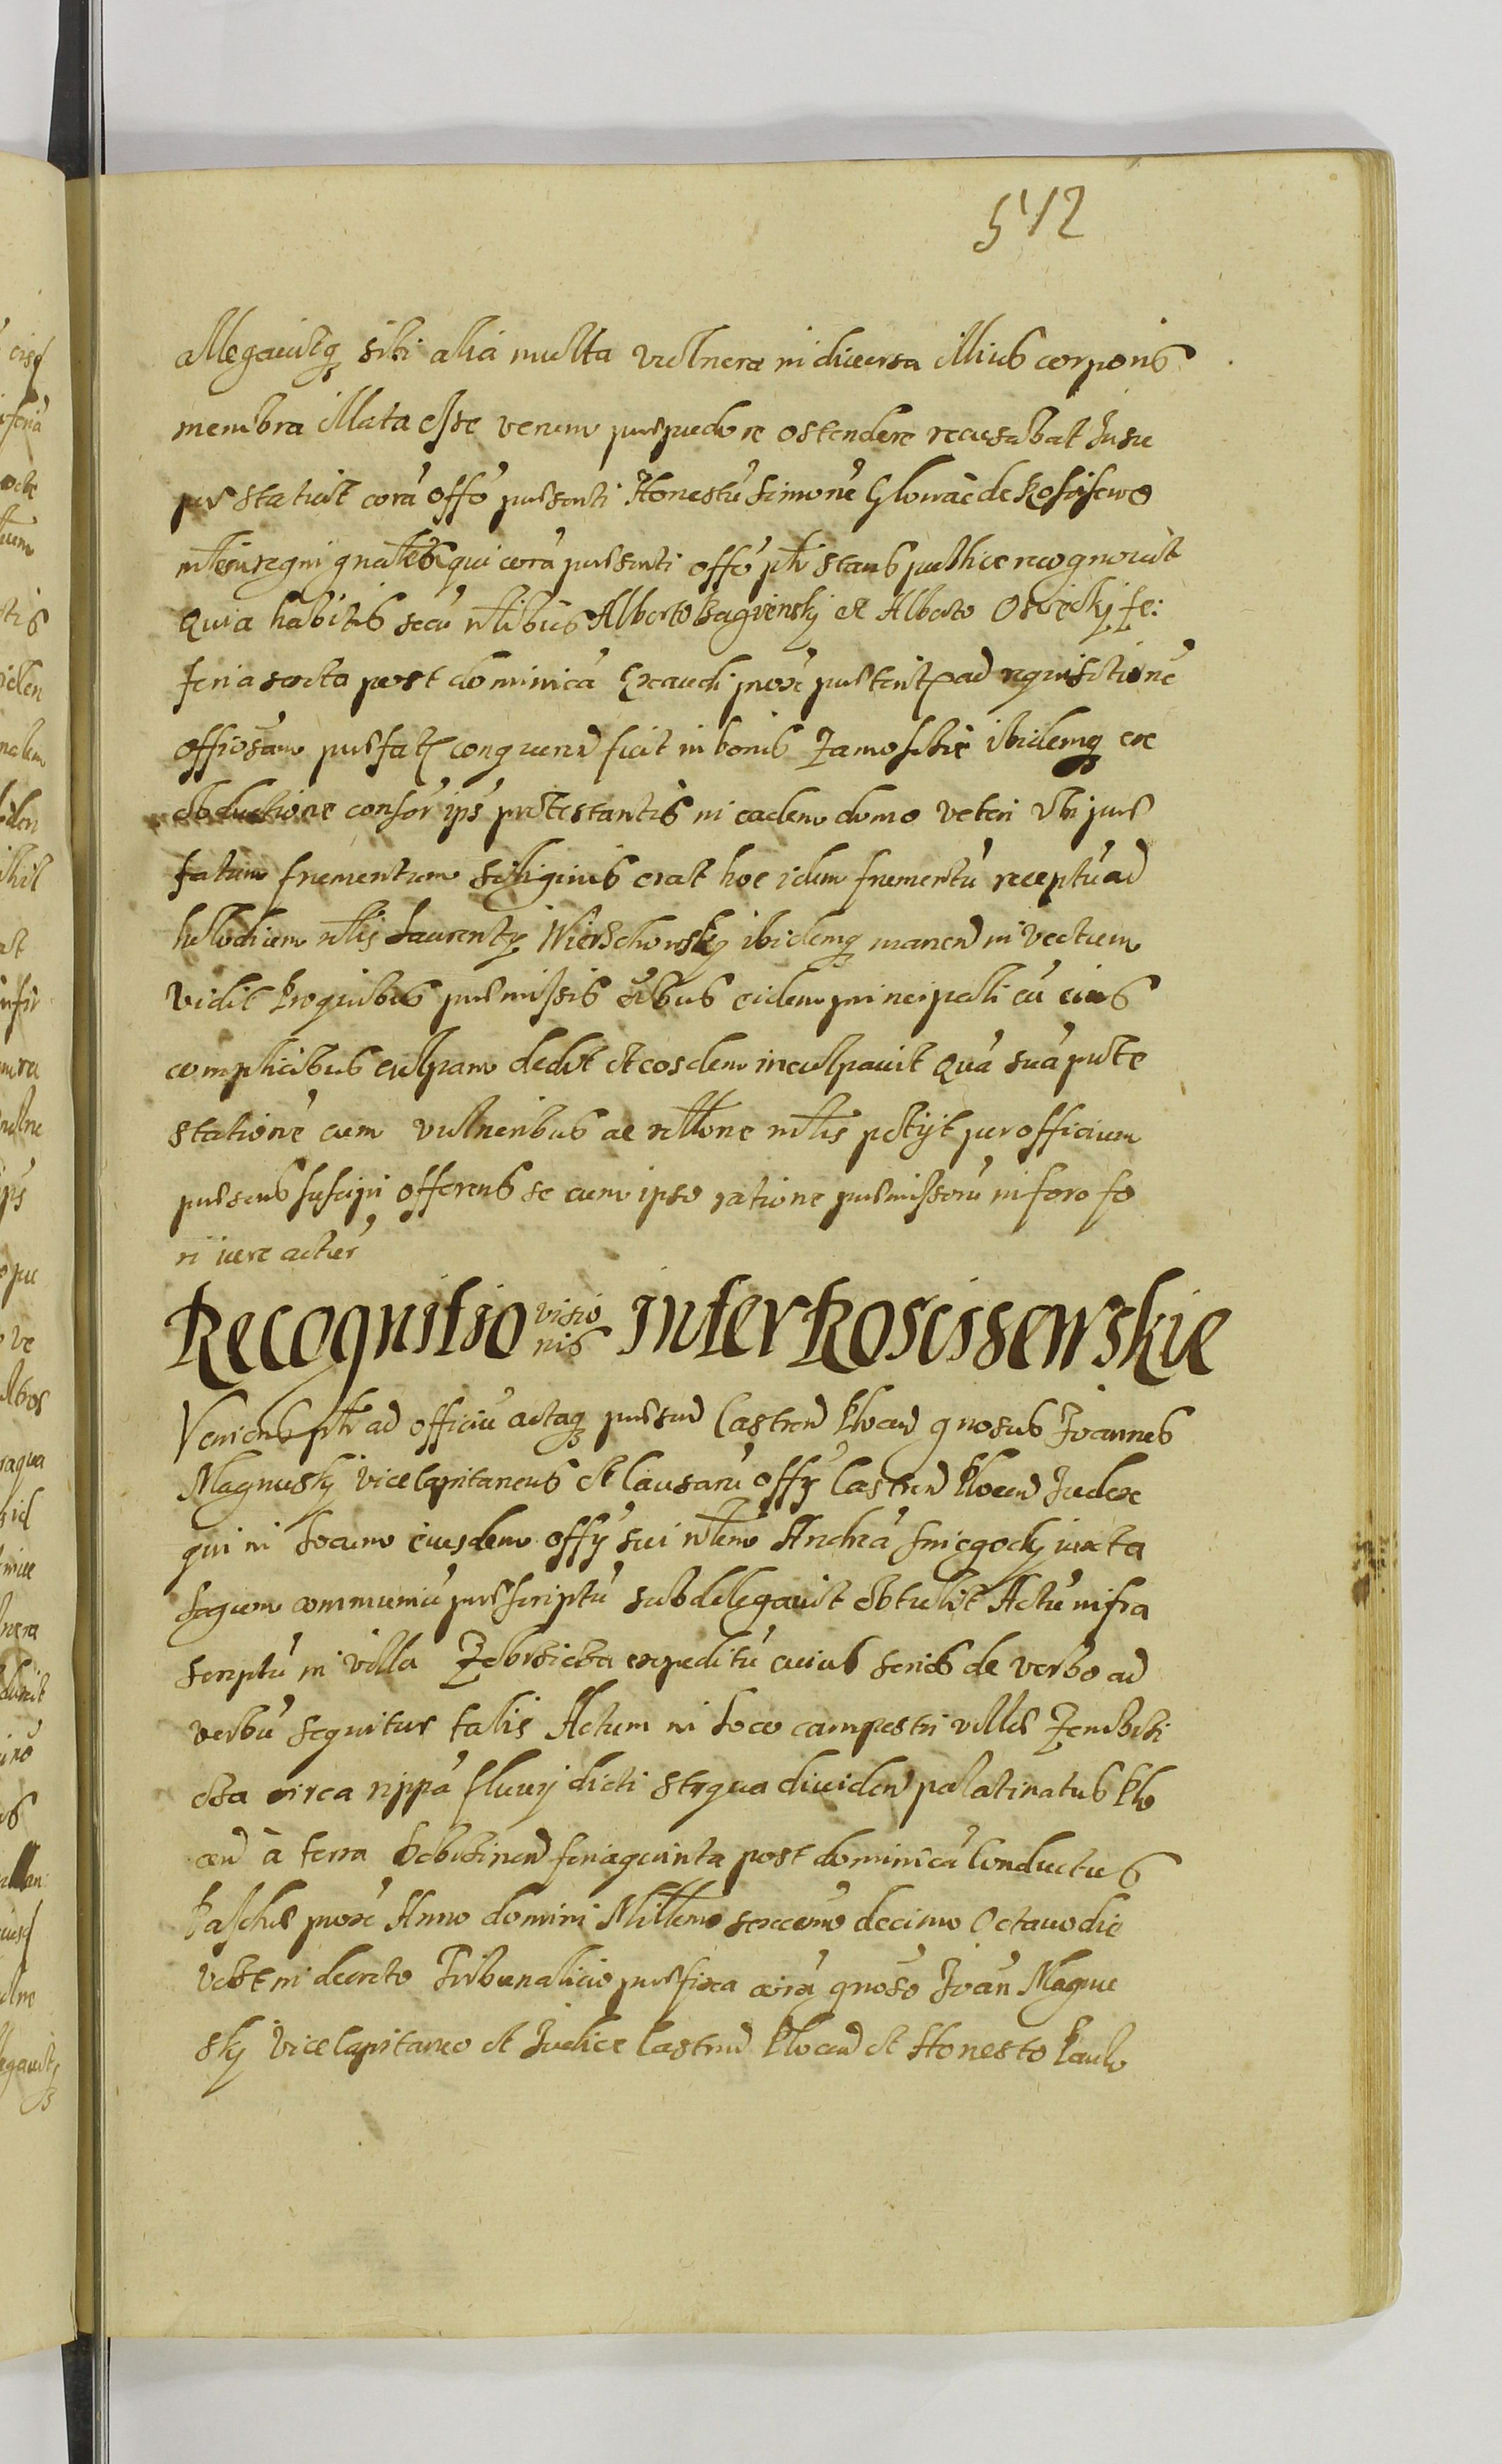 512
allegavitq sibi alia multa vulnera in diversa illius corporis
membra illata esse verum præ pudore ostendere recusabat Insu
per statuit corã offõ præsenti Honestũ Simonẽ Glowac de Rosciszewo
mtem regni gnalẽ qui corã præsenti offõ pñr stans publice recognovit
Quia habitis secũ nlibus Alberto Bagiensky et Alberto Osiecky fe:
feria sexta post dominicã Exaudi prox̃ præterit ad requisitionẽ
offiosam præfati conqueren fuit in bonis Zamosscie ibidemq ex
obductione consor ips protestantis in eadem domo veteri Ubi præ
fatum frumentum siliginis erat hoc idem frumentũ receptũ ad
hlodium nlis Laurenty Wierzchowsky ibidemq manen invectum
vidit Pro quibus præmissis oibus eidem principali cũ eius
complicibus culpam dedit et eosdem inculpavit Quã suã prote
stationẽ cum vulneribus ac rlltione mlis petyt per officium
præsens suscipi offerens se cum ipso ratione præmissorũ in foro fo
ri iure acturũ
Recognitio visio
nis inter Rosciszewskie
Veniens pñr ad officiũ actaq præsen Castren Plocen gnosus Joannes
Magnusky viceCapitaneus et Causarũ offy Castren Plocen Judex
qui in locum eiusdem offy sui nlem Andreã Sniegocky iuxta
legum communiũ præscriptũ subdelegavit obtulit Actũ infra
scriptũ in villa expeditũ cuius series de verbo ad
verbũ sequitur talis Actum in loco campestri villæ Zembrti
cka circa rippã fluvy dicti Strqua dividen palatinatus Plo
cen à terra Dobrinen feria quinta post dominicã Conductus
Paschæ prox̃ Anno domini Millemo sexcemo decimo Octavo die
videlt in decreto Tribunalicio præfixa corã gnoso Joan Magnu
sky ViceCapitaneo et Judice Castren Plocen et Honesto Paulo